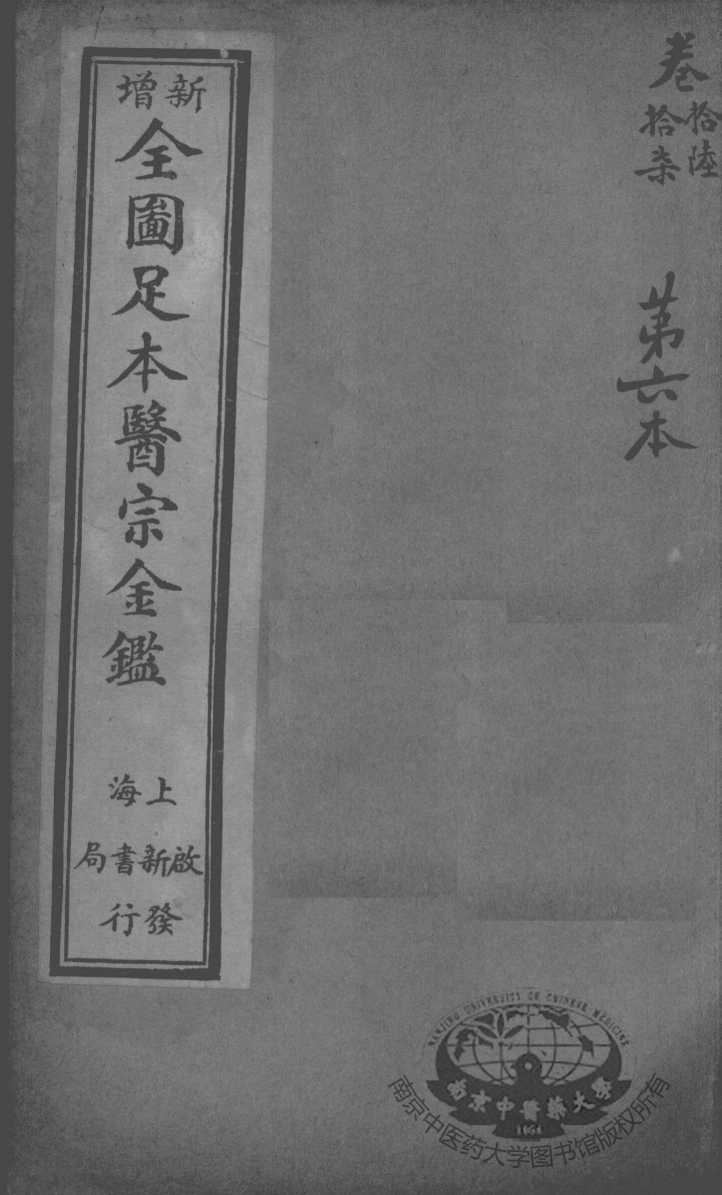 卷拾陸
拾柒
第六本
新增
全圖足本醫宗金鑑
上海
啟新書局
發行
NANJING UNIVERSITY OF CHINESE MEDICINE
南京中醫藥大學
1954
南京中医药大学图书馆版权所有